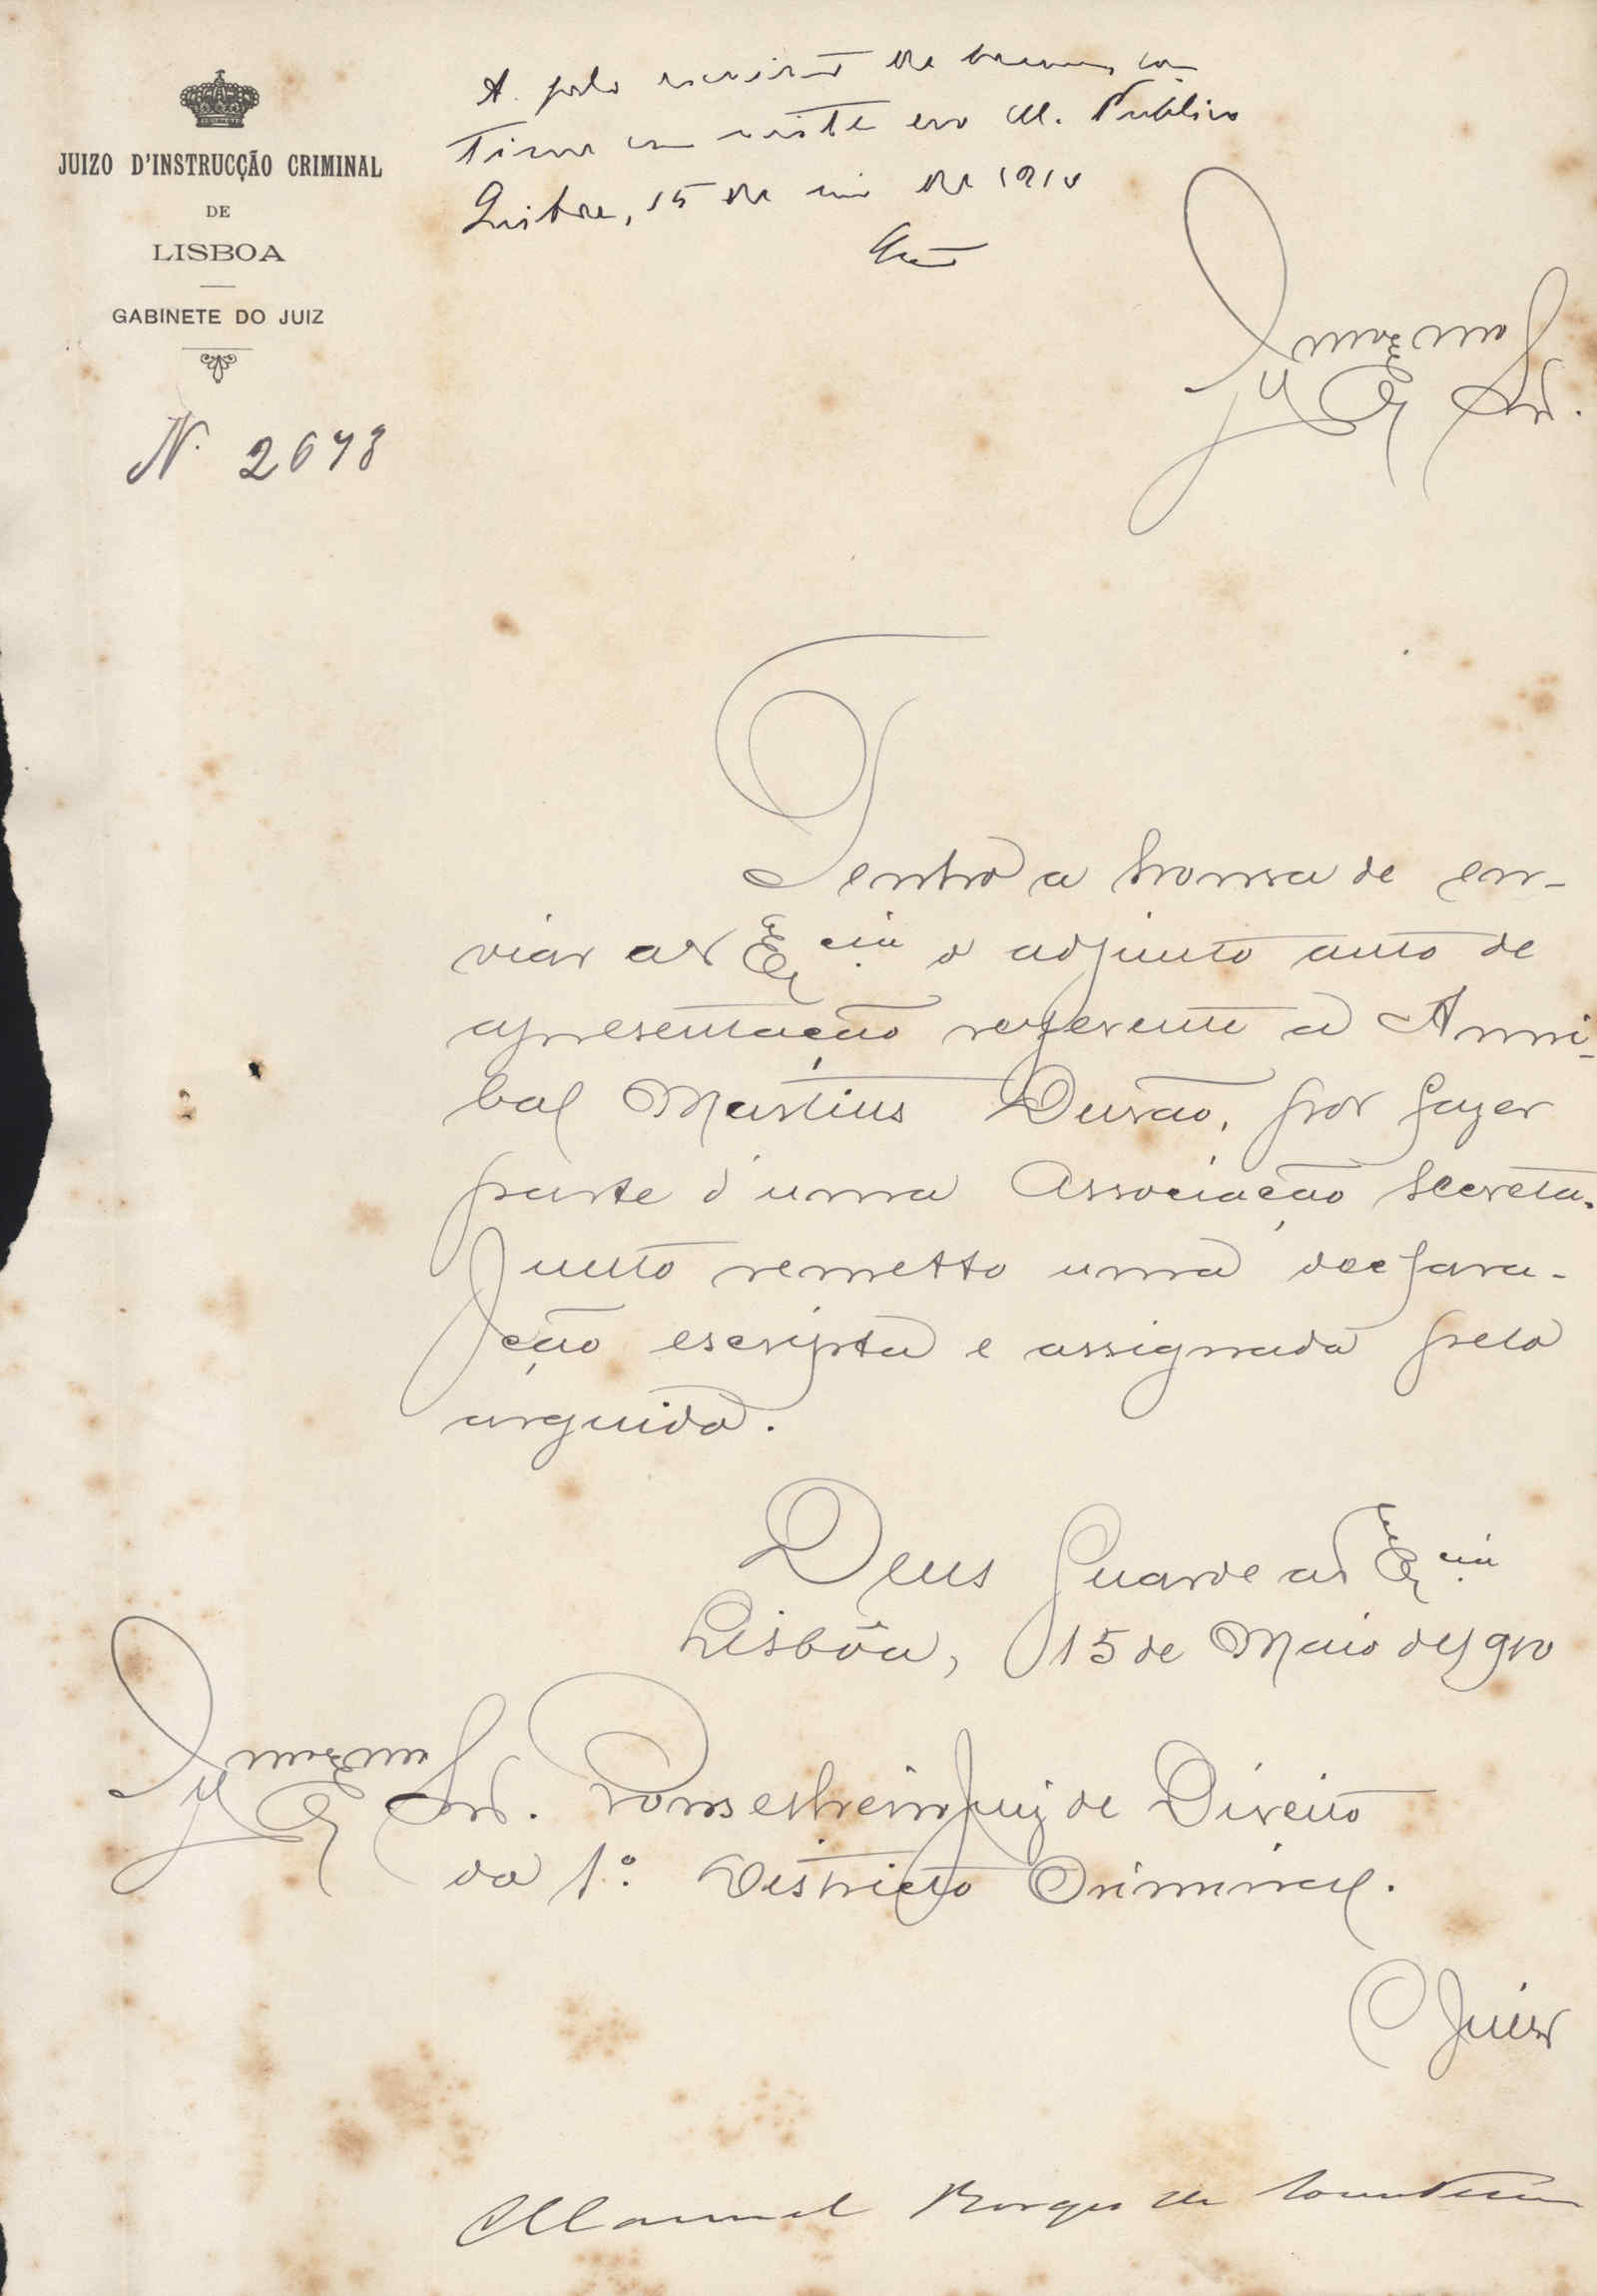 JUIZO D'INSTRUCÇÃO CRIMINAL
DE
LISBOA
GABINETE DO JUIZ
N. 2678
A. pelo escrivão de
vista ao M. Publico
Lisboa, 15 de maio de 1910
Illmo e Exmo Snr.
Tenho a honra de en-
viar a V. Excia o adjunto auto de
apresentação referente a Anni-
bal Martins Durão, por fazer
parte d'uma Associação Secreta.
Junto remetto uma declara-
ção escripta e assignada pelo
arguido.
Deus Guarde a V. Excia
Lisbôa, 15 de Maio de 1910
Illmo e Exmo Snr. Conselheiro Juiz de Direito
do 1º. Districto Criminal.
O Juiz
Manuel Borges de